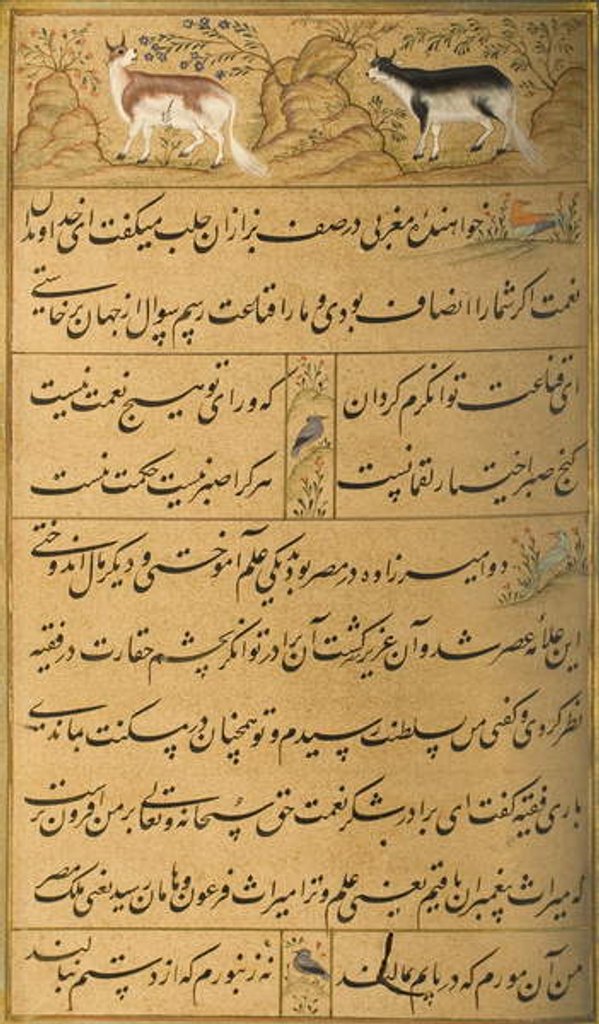 خواهنده مغربی در صف بزازان حلب میکفت ای خداوندان
نعمت اکر شما را انصاف بودی و ما را قناعت رسم سوال از جهان برخاستی
ای قناعت توانکرم کردان که ورای تو هیچ نعمت نیست
کنج صبر اختیار لقمانست هر کرا صبر نیست حکمت نیست
دو امیرزاده در مصر بودند یکی علم آموختی و دیکر مال اندوختی
این علامه عصر شد و آن عزیز کشت آن برادر توانکر بچشم حقارت در فقیه
نظر کردی و کفتی من بسلطنت رسیدم و تو همچنان در مسکنت بماندی
باری فقیه کفت ای برادر شکر نعمت حق سبحانه و تعالی بر من افزون تر است
که میراث پیغمبران یافتیم یعنی علم و ترا میراث فرعون و هامان رسید یعنی ملک مصر
من آن مورم که در پایم بمالند نه زنبورم که از دستم بنالند